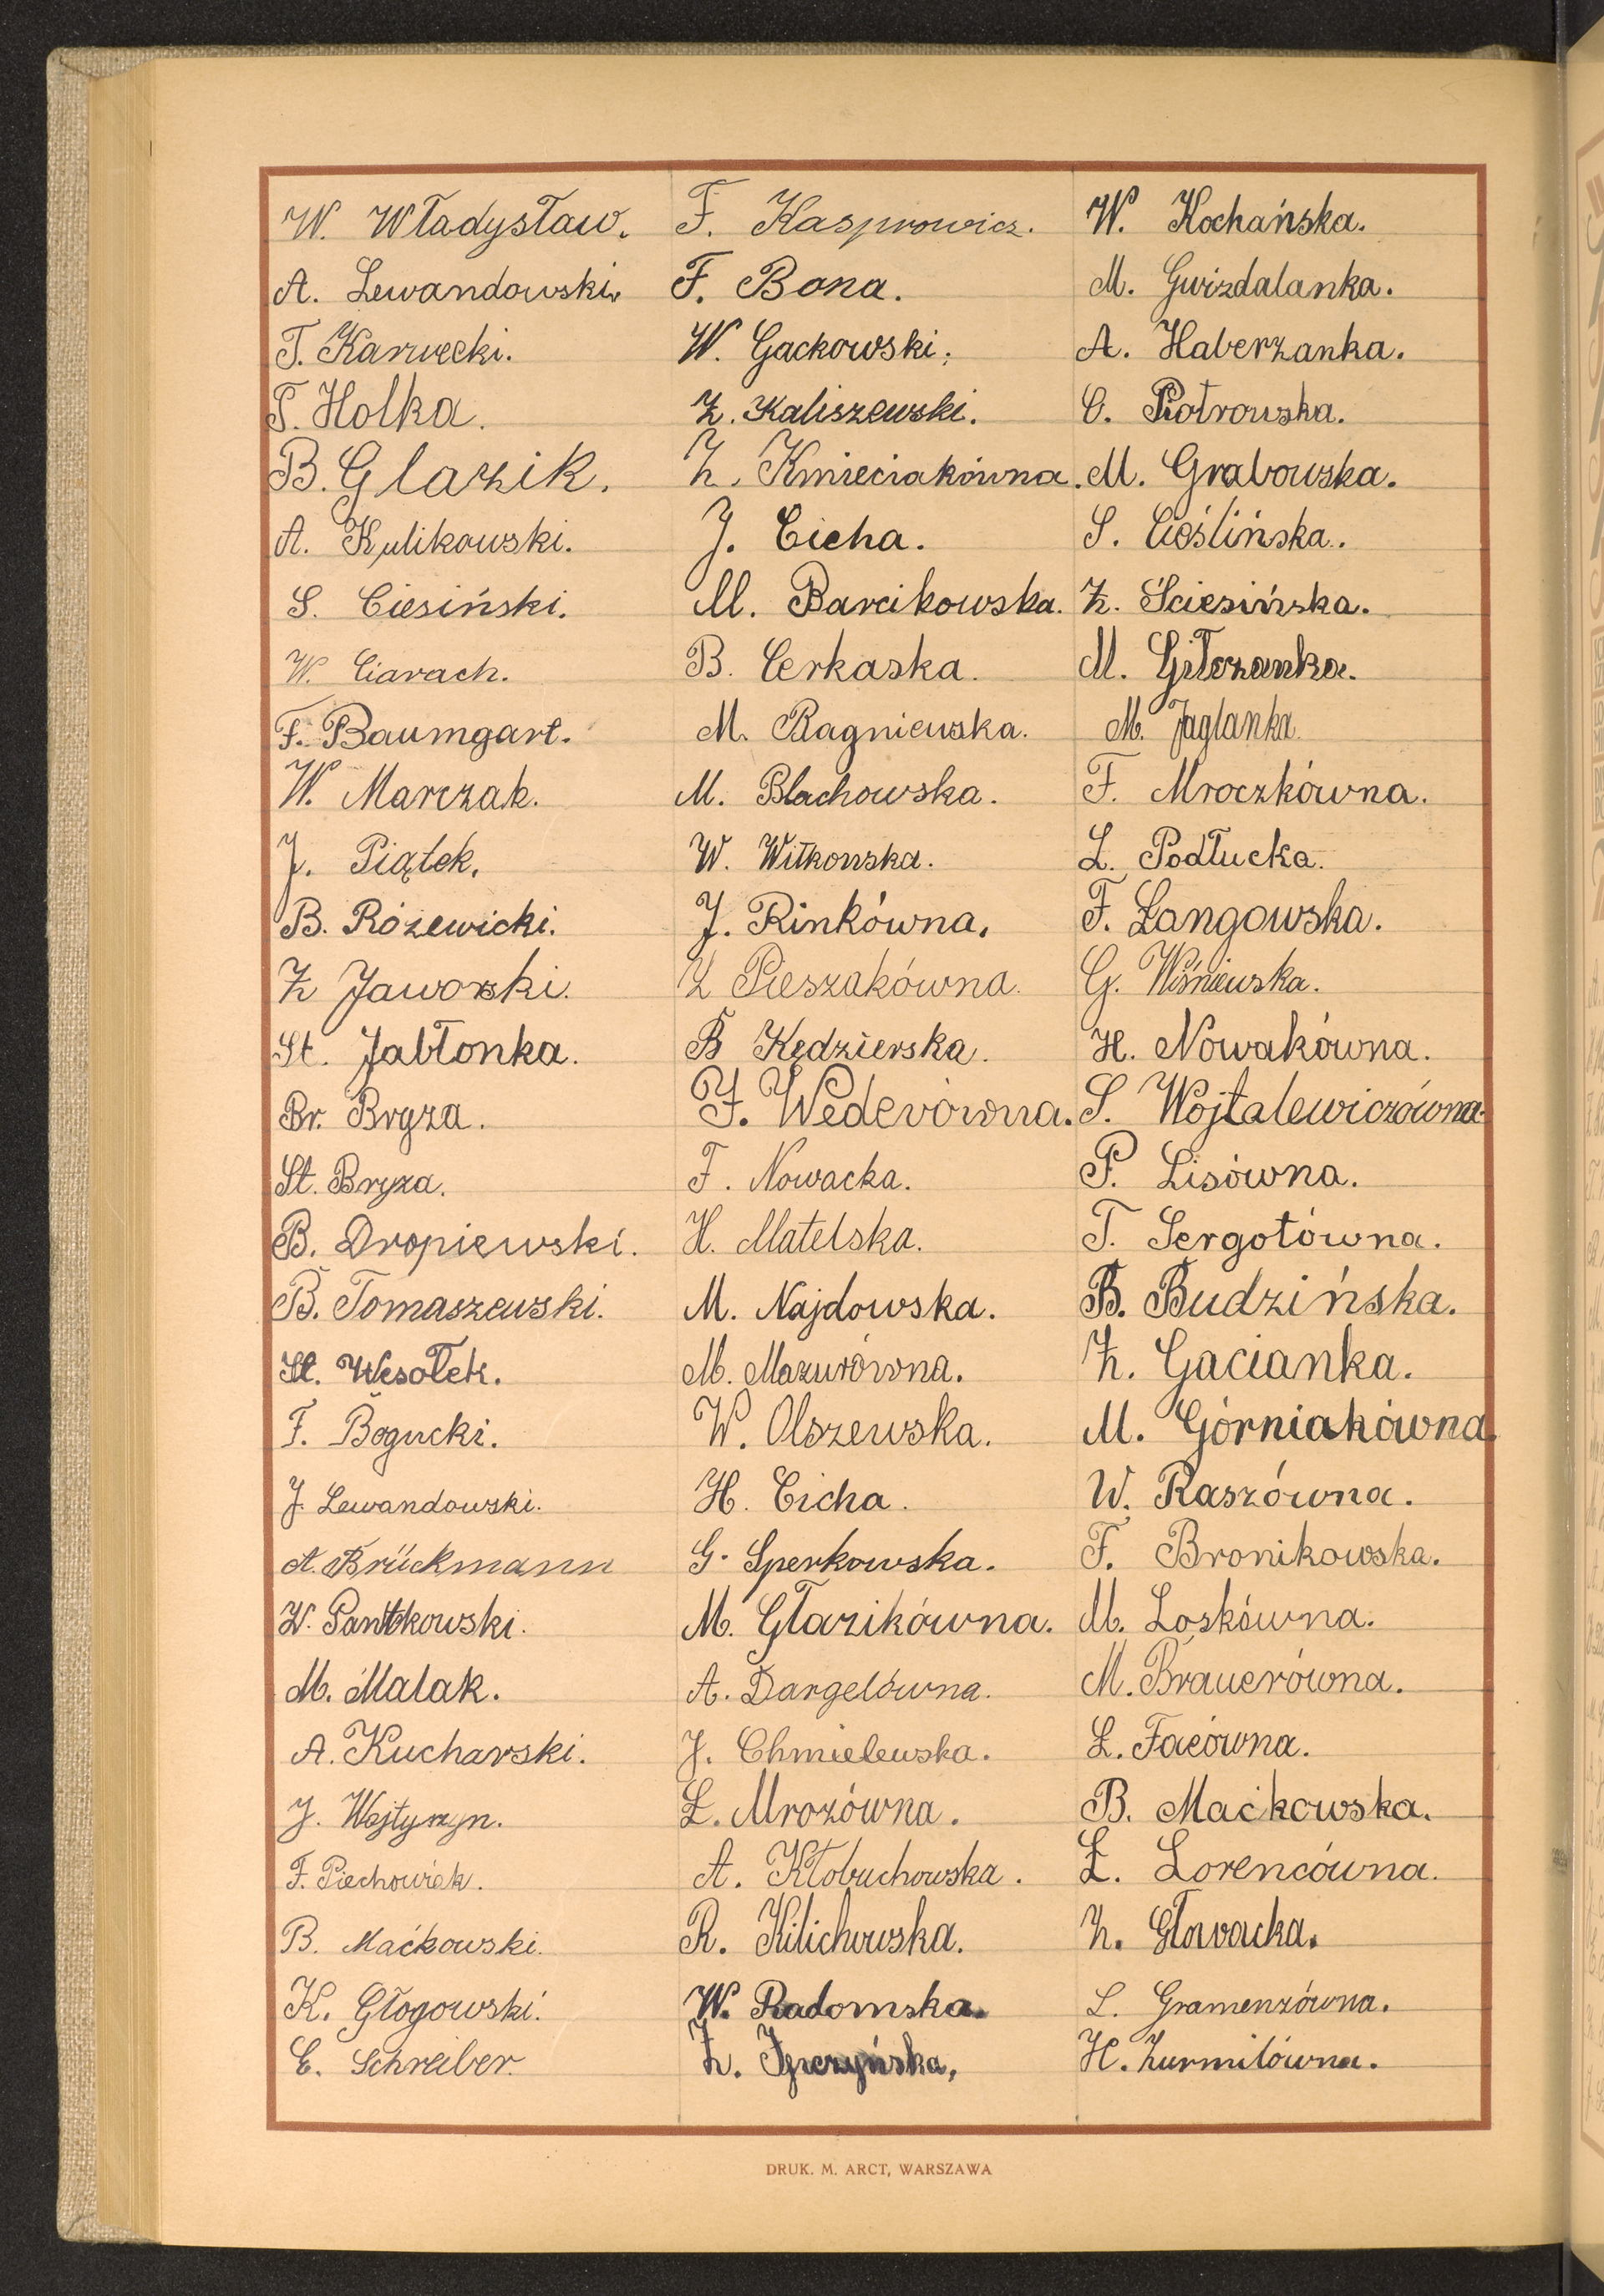 W. Władysław.
A. Lewandowski.
T. Karwecki.
T. Holka.
B. Glazik.
A. Kulikowski.
S. Ciesiński.
W. Ciarach.
F. Baumgart.
W. Marczak.
J. Piątek.
B. Różewicki.
Z Jaworski.
St. Jabłonka.
Br. Bryza.
St. Bryza.
B. Dropiewski.
B. Tomaszewski.
St. Wesołek.
F. Bogucki.
J. Lewandowski.
A. Brückmann
W. Pantkowski.
M. Malak.
A. Kucharski.
J. Wojtyszyn.
F. Piechowiak.
B. Maćkowski.
K. Głogowski.
E. Schreiber.
F. Kasprowicz.
F. Bona.
W. Gackowski.
Z. Kaliszewski.
Z. Kmieciakówna.
J. Cicha.
M. Barcikowska.
B. Cerkaska.
M. Ragniewska.
M. Blachowska.
W. Witkowska.
J. Rinkówna.
Z Pieszakówna.
B Kędzierska.
J. Wedevówna.
F. Nowacka.
H. Matelska.
M. Najdowska.
M. Mazurówna.
W. Olszewska.
H. Cicha.
G. Sperkowska.
M. Głazikówna.
A. Dargelówna.
J. Chmielewska.
Ł. Mrozówna.
A. Kłobuchowska.
R. Kilichowska.
W. Radomska.
Z.
W. Kochańska.
M. Gwizdalanka.
A. Haberzanka.
C. Piotrowska.
M. Grabowska.
S. Cieślińska.
Z. Ściesińska.
M. Giłczanka.
M. Jaglanka.
F. Mroczkówna.
L. Podłucka.
F. Langowska.
G. Wiśniewska.
H. Nowakówna.
S. Wojtalewiczówna.
P. Lisówna.
T. Sergotówna.
B. Budzińska.
Z. Gacianka.
M. Górniakówna.
W. Raszówna.
F. Bronikowska.
M. Loskówna.
M. Brauerówna.
L. Facówna.
B. Maćkowska.
Ł. Lorencówna.
Z. Głowacka.
L. Gramenzówna.
H. Żurmilówna.
DRUK. M. ARCT, WARSZAWA